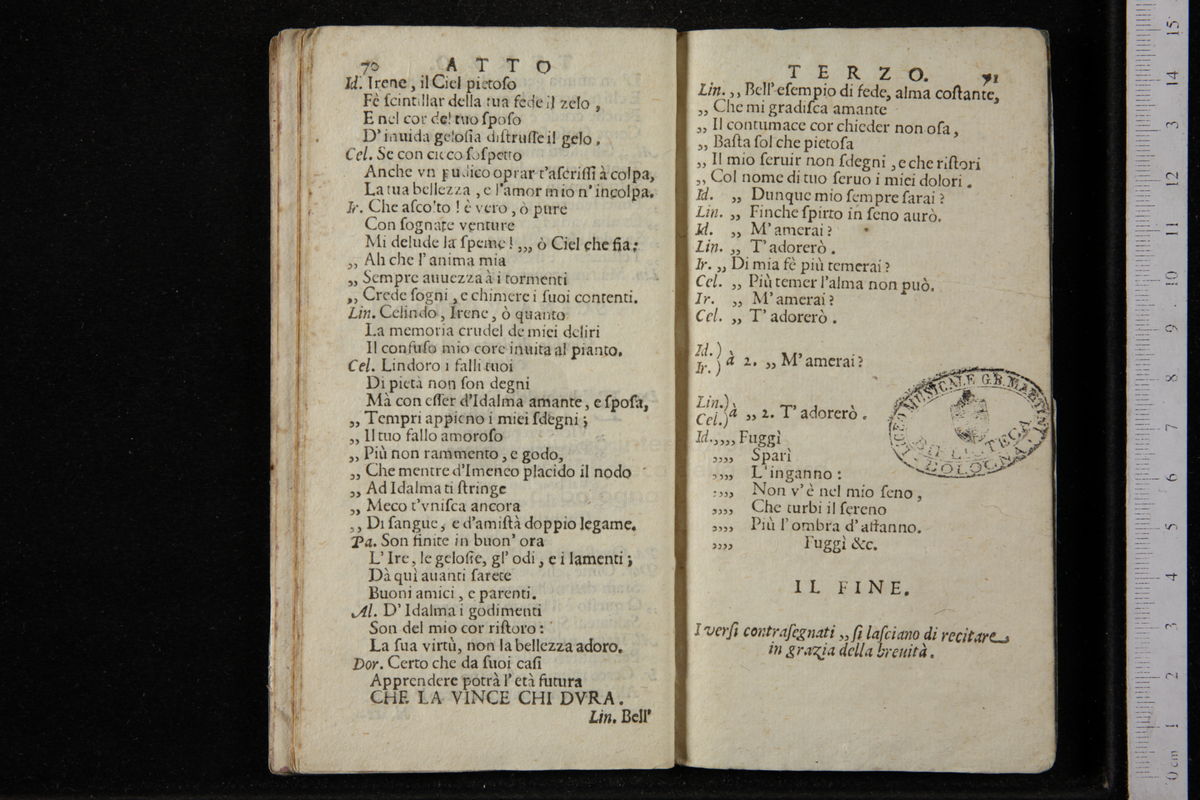 70 ATTO
Id. Irene, il Ciel pietoſo
Fè ſcintillar della tua fede il zelo,
E nel cor del tuo ſpoſo
D'inuida geloſia diſtruſſe il gelo.
Cel. Se con cieco ſoſpetto
Anche vn pudico oprar t'aſcriſſi à colpa,
La tua bellezza, e l'amor mio n'incolpa.
Ir. Che aſcolto! è vero, ò pure
Con ſognate venture
Mi delude la ſpeme! ,,, ò Ciel che fia:
,, Ah che l'anima mia
,, Sempre auuezza à i tormenti
,, Crede ſogni, e chimere i ſuoi contenti.
Lin. Celindo, Irene, ò quanto
La memoria crudel de miei deliri
Il confuſo mio core inuita al pianto.
Cel. Lindoro i falli tuoi
Di pietà non ſon degni
Mà con eſſer d'Idalma amante, e ſpoſa,
,, Tempri appieno i miei ſdegni;
,, Il tuo fallo amoroſo
,, Più non rammento, e godo,
,, Che mentre d'Imeneo placido il nodo
,, Ad Idalma ti ſtringe
,, Meco t'vniſca ancora
,, Di ſangue, e d'amiſtà doppio legame.
Pa. Son finite in buon' ora
L'Ire, le geloſie, gl'odi, e i lamenti;
Dà quì auanti ſarete
Buoni amici, e parenti.
Al. D'Idalma i godimenti
Son del mio cor riſtoro:
La ſua virtù, non la bellezza adoro.
Dor. Certo che da ſuoi caſi
Apprendere potrà l'età futura
CHE LA VINCE CHI DVRA.
Lin. Bell'
TERZO. 71
Lin. ,, Bell'eſempio di fede, alma coſtante,
,, Che mi gradiſca amante
,, Il contumace cor chieder non oſa,
,, Baſta ſol che pietoſa
,, Il mio ſeruir non ſdegni, e che riſtori
,, Col nome di tuo ſeruo i miei dolori.
Id. ,, Dunque mio ſempre ſarai?
Lin. ,, Finche ſpirto in ſeno aurò.
Id. ,, M'amerai?
Lin. ,, T'adorerò.
Ir. ,, Di mia fè più temerai?
Cel. ,, Più temer l'alma non può.
Ir. ,, M'amerai?
Cel. ,, T'adorerò.
Id.)
Ir. ) à 2. ,, M'amerai?
Lin.)
Cel.) à ,, 2. T'adorerò.
Id.,,,, Fuggì
,,,, Sparì
,,,, L'inganno:
,,,, Non v'è nel mio ſeno,
,,,, Che turbi il ſereno
,,,, Più l'ombra d'affanno.
,,,, Fuggì &c.
IL FINE.
I verſi contraſegnati ,, ſi laſciano di recitare
in grazia della breuità.
LICEO MUSICALE G.B. MARTINI
BIBLIOTECA
BOLOGNA